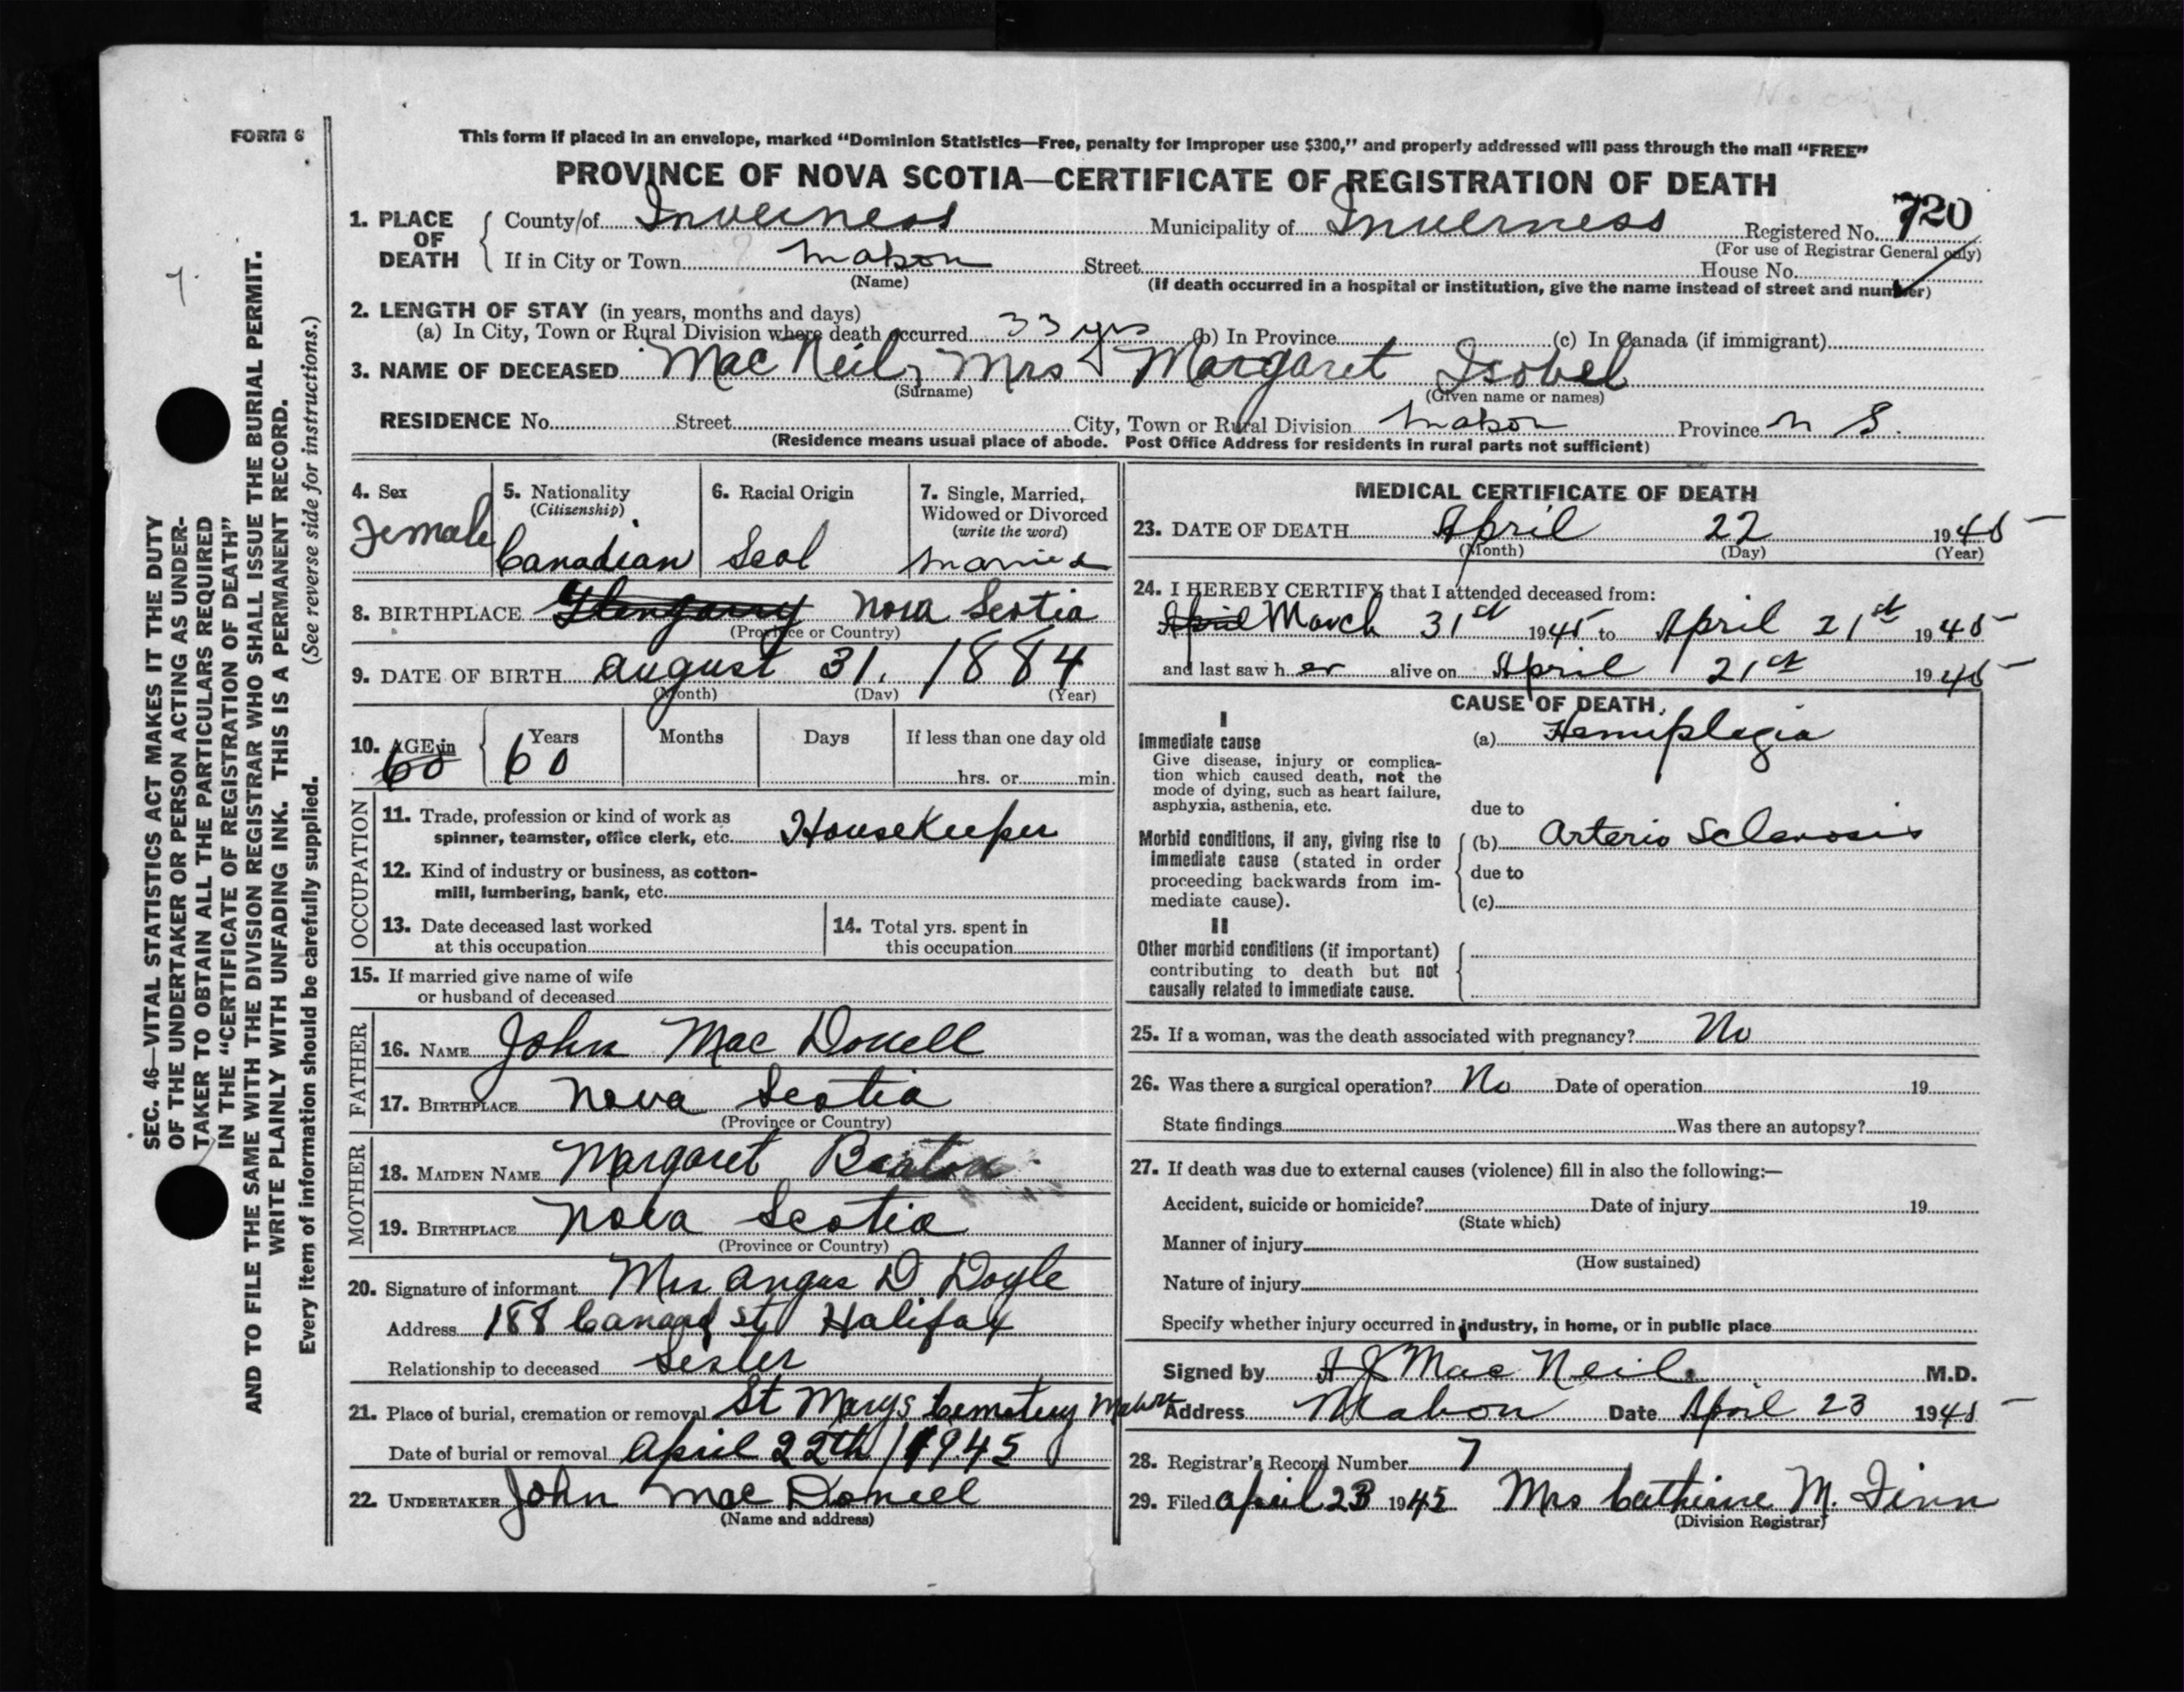 FORM 6
This form if placed in an envelope, marked “Dominion Statistics—Free, penalty for improper use $300,” and properly addressed will pass through the mail “FREE”
PROVINCE OF NOVA SCOTIA—CERTIFICATE OF REGISTRATION OF DEATH
1. PLACE OF DEATH { County of Inverness Municipality of Inverness Registered No. 720
(For use of Registrar General only)
If in City or Town Mabou Street House No.
(Name) (If death occurred in a hospital or institution, give the name instead of street and number)
2. LENGTH OF STAY (in years, months and days)
(a) In City, Town or Rural Division where death occurred 33 yrs (b) In Province (c) In Canada (if immigrant)
3. NAME OF DECEASED Mac Neil, Mrs Margaret Isobel
(Surname) (Given name or names)
RESIDENCE No. Street City, Town or Rural Division Mabou Province N S.
(Residence means usual place of abode. Post Office Address for residents in rural parts not sufficient)
4. Sex Female
5. Nationality (Citizenship) Canadian
6. Racial Origin Scot
7. Single, Married, Widowed or Divorced (write the word) Married
8. BIRTHPLACE Glengarry Nova Scotia
(Province or Country)
9. DATE OF BIRTH August 31. 1884
(Month) (Day) (Year)
10. AGE in 60 { Years 60 Months Days If less than one day old
hrs. or min.
OCCUPATION
11. Trade, profession or kind of work as
spinner, teamster, office clerk, etc. HouseKeeper
12. Kind of industry or business, as cotton-
mill, lumbering, bank, etc.
13. Date deceased last worked
at this occupation
14. Total yrs. spent in
this occupation
15. If married give name of wife
or husband of deceased
FATHER
16. NAME John Mac Donell
17. BIRTHPLACE Nova Scotia
(Province or Country)
MOTHER
18. MAIDEN NAME Margaret Beaton
19. BIRTHPLACE Nova Scotia
(Province or Country)
20. Signature of informant Mrs Angus D Doyle
Address 188 St Halifax
Relationship to deceased Sister
21. Place of burial, cremation or removal St Marys Cemetery Mabou
Date of burial or removal April 22th / 1945
22. UNDERTAKER John Mac Donell
(Name and address)
MEDICAL CERTIFICATE OF DEATH
23. DATE OF DEATH April 22 1945
(Month) (Day) (Year)
24. I HEREBY CERTIFY that I attended deceased from:
April March 31st 1945 to April 21st 1945
and last saw h er alive on April 21st 1945
CAUSE OF DEATH
I
Immediate cause
Give disease, injury or complica-
tion which caused death, not the
mode of dying, such as heart failure,
asphyxia, asthenia, etc.
(a) Hemiplegia
due to
Morbid conditions, if any, giving rise to
immediate cause (stated in order
proceeding backwards from im-
mediate cause).
(b) Arterio Sclerosis
due to
(c)
II
Other morbid conditions (if important)
contributing to death but not
causally related to immediate cause.
25. If a woman, was the death associated with pregnancy? No
26. Was there a surgical operation? No Date of operation 19
State findings Was there an autopsy?
27. If death was due to external causes (violence) fill in also the following:—
Accident, suicide or homicide? Date of injury 19
(State which)
Manner of injury
(How sustained)
Nature of injury
Specify whether injury occurred in industry, in home, or in public place
Signed by A J Mac Neil M.D.
Address Mabou Date April 23 1945
28. Registrar's Record Number 7
29. Filed April 23 1945 Mrs Catherine M. Finn
(Division Registrar)
7.
SEC. 46—VITAL STATISTICS ACT MAKES IT THE DUTY
OF THE UNDERTAKER OR PERSON ACTING AS UNDER-
TAKER TO OBTAIN ALL THE PARTICULARS REQUIRED
IN THE “CERTIFICATE OF REGISTRATION OF DEATH”
AND TO FILE THE SAME WITH THE DIVISION REGISTRAR WHO SHALL ISSUE THE BURIAL PERMIT.
WRITE PLAINLY WITH UNFADING INK. THIS IS A PERMANENT RECORD.
Every item of information should be carefully supplied. (See reverse side for instructions.)